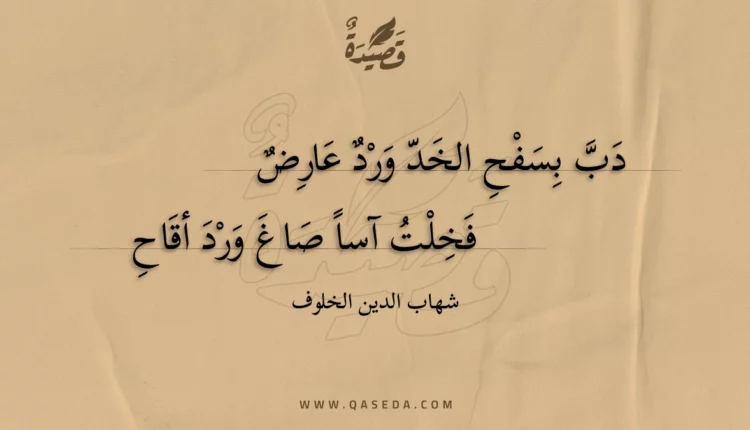 قَصِيدَةٌ
دَبَّ بِسَفْحِ الخَدّ وَرْدٌ عَارِضٌ
فَخِلْتُ آساً صَاغَ وَرْدَ أقَاحِ
شهاب الدين الخلوف
WWW.QASEDA.COM